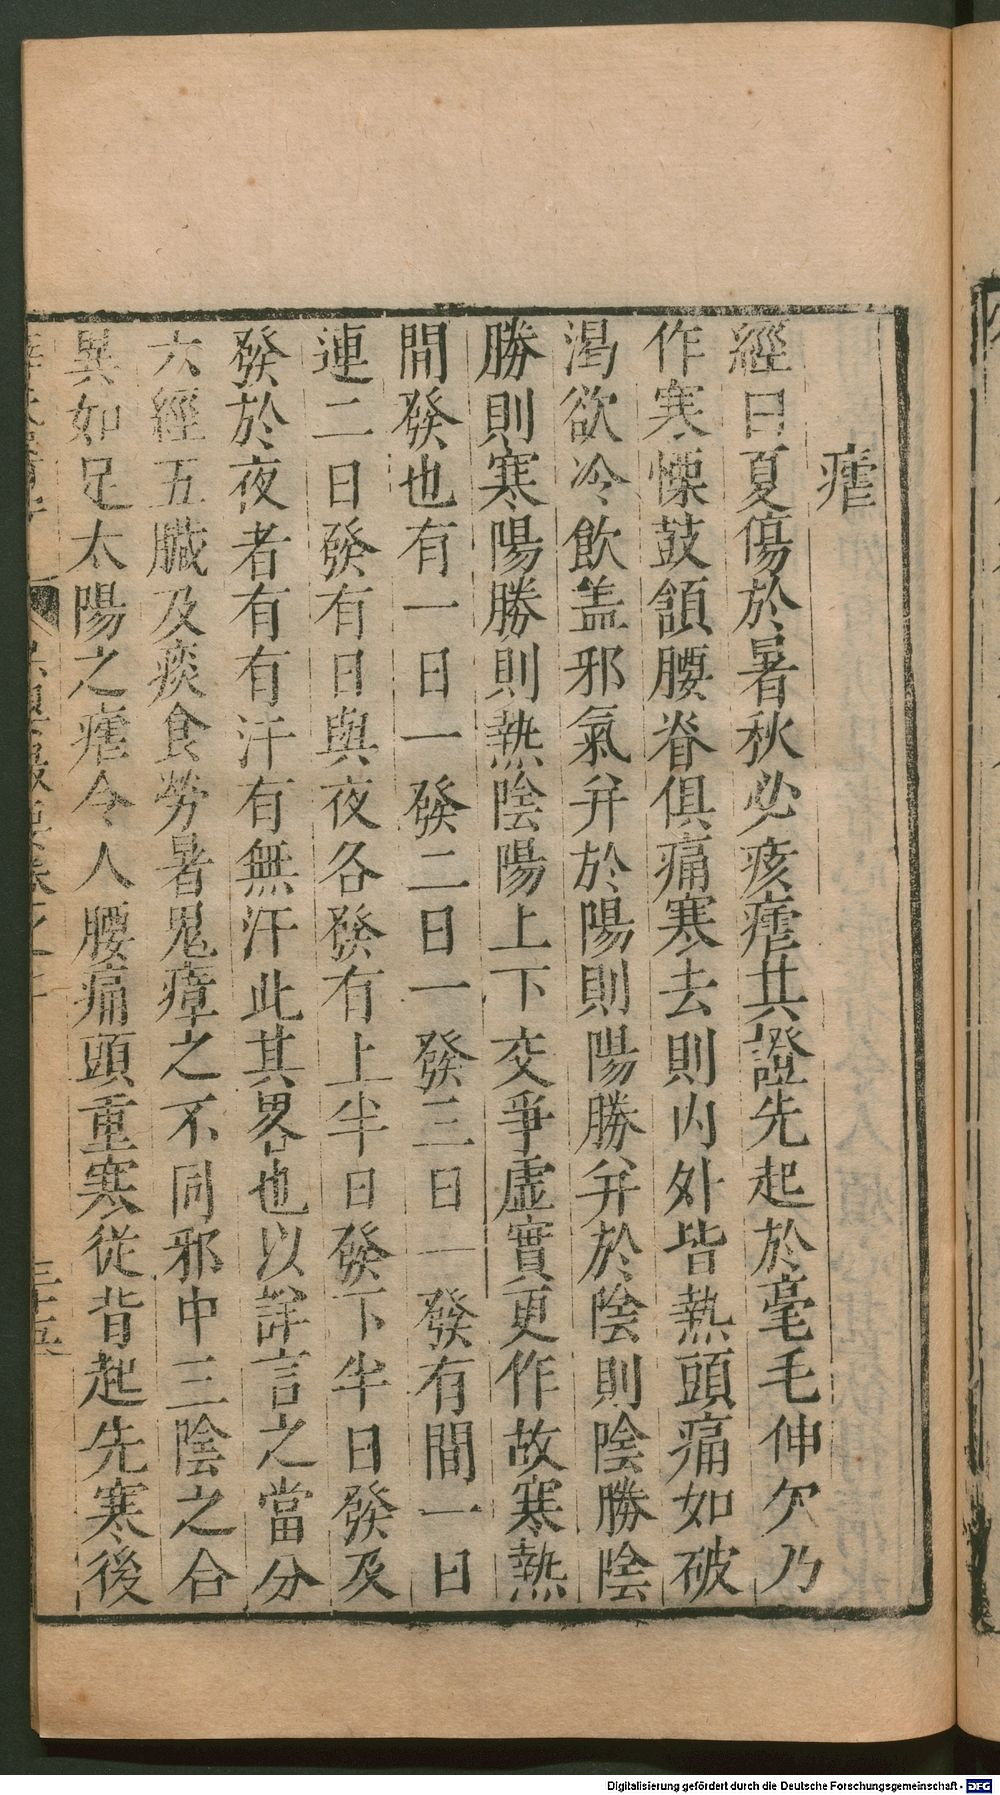 瘧
經曰夏傷於暑秋必痎瘧其證先起於毫毛伸欠乃
作寒慄鼓頷腰脊俱痛寒去則內外皆熱頭痛如破
渴欲冷飲盖邪氣并於陽則陽勝并於陰則陰勝陰
勝則寒陽勝則熱陰陽上下交爭虛實更作故寒熱
間發也有一日一發二日一發三日一發有間一日
連二日發有日與夜各發有上半日發下半日發及
發於夜者有有汗有無汗此其畧也以詳言之當分
六經五臟及痰食勞暑鬼瘴之不同邪中三陰之合
異如足太陽之瘧令人腰痛頭重寒從背起先寒後
三十五
Digitalisierung gefördert durch die Deutsche Forschungsgemeinschaft - DFG